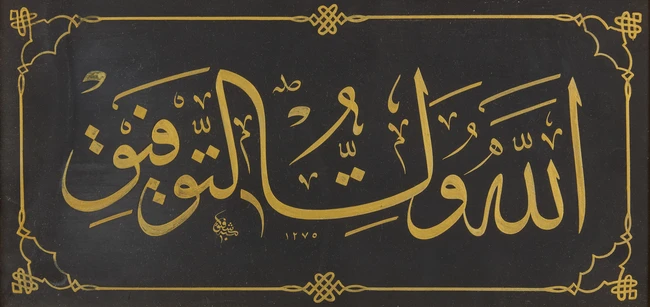 الله ولي التوفيق
١٢٧٥